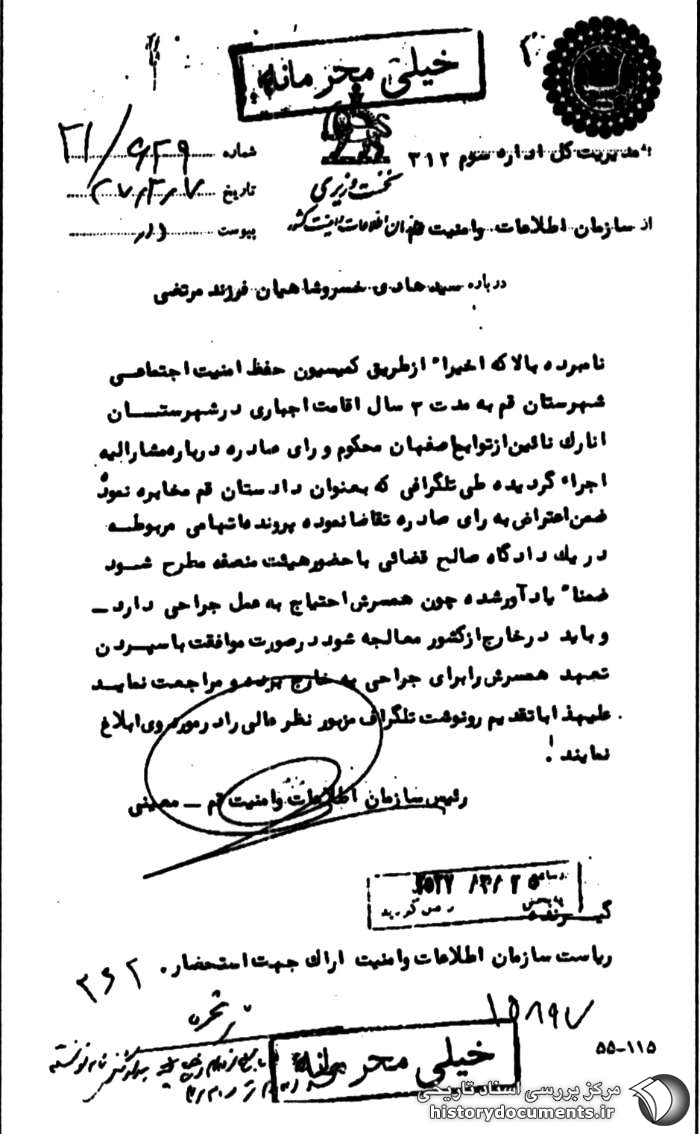 خیلی محرمانه
به مدیریت کل اداره سوم ۳۱۲
شماره ۲۱/۶۲۹
نخست وزیری
تاریخ ۳۷٫۳٫۷
سازمان اطلاعات و امنیت کشور
از سازمان اطلاعات و امنیت قم
پیوست دارد
درباره سید هادی خسروشاهیان فرزند مرتضی
نامبرده بالا که اخیراً از طریق کمیسیون حفظ امنیت اجتماعی
شهرستان قم به مدت ۳ سال اقامت اجباری در شهرستان
انارک نائین از توابع اصفهان محکوم و رای صادره درباره مشارالیه
اجراء گردیده طی تلگرافی که بعنوان دادستان قم مخابره نموده
ضمن اعتراض به رای صادره تقاضا نموده پرونده اتهامی مربوطه
در یک دادگاه صالح قضائی با حضور هیئت منصفه مطرح شود
ضمناً یادآور شده چون همسرش احتیاج به عمل جراحی دارد ـ
و باید در خارج از کشور معالجه شود در صورت موافقت با سپردن
تعهد همسرش را برای جراحی به خارج برده و مراجعت نماید
علیهذا با تقدیم رونوشت تلگراف مزبور نظر عالی را در مورد وی ابلاغ
نمایند!
رئیس سازمان اطلاعات و امنیت قم ـ معینی
۲۵۳۷ /۳/ ۲۵
گیرنده
ریاست سازمان اطلاعات و امنیت اراک جهت استحضار.
۳۶۲
۱۵۸۹۷
۵۵-۱۱۵
خیلی محرمانه
مرکز بررسی اسناد تاریخی
historydocuments.ir